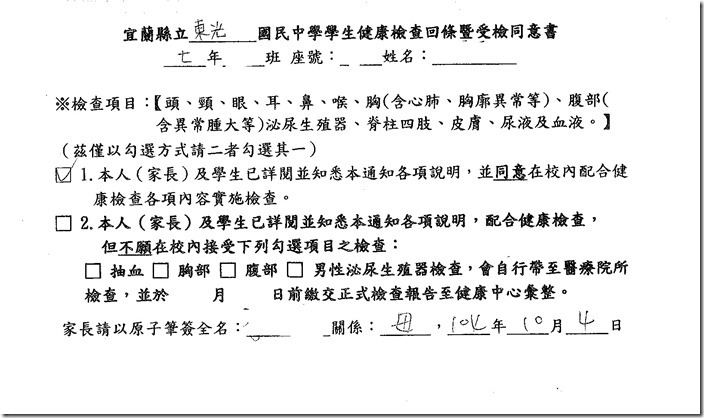 宜蘭縣立東光國民中學學生健康檢查回條暨受檢同意書
七年 班 座號： 姓名：
※檢查項目：【頭、頸、眼、耳、鼻、喉、胸(含心肺、胸廓異常等)、腹部(
含異常腫大等)泌尿生殖器、脊柱四肢、皮膚、尿液及血液。】
（茲僅以勾選方式請二者勾選其一）
☑ 1.本人（家長）及學生已詳閱並知悉本通知各項說明，並同意在校內配合健
康檢查各項內容實施檢查。
☐ 2.本人（家長）及學生已詳閱並知悉本通知各項說明，配合健康檢查，
但不願在校內接受下列勾選項目之檢查：
☐ 抽血 ☐ 胸部 ☐ 腹部 ☐ 男性泌尿生殖器檢查，會自行帶至醫療院所
檢查，並於 月 日前繳交正式檢查報告至健康中心彙整。
家長請以原子筆簽全名： 關係：母，104年10月4日